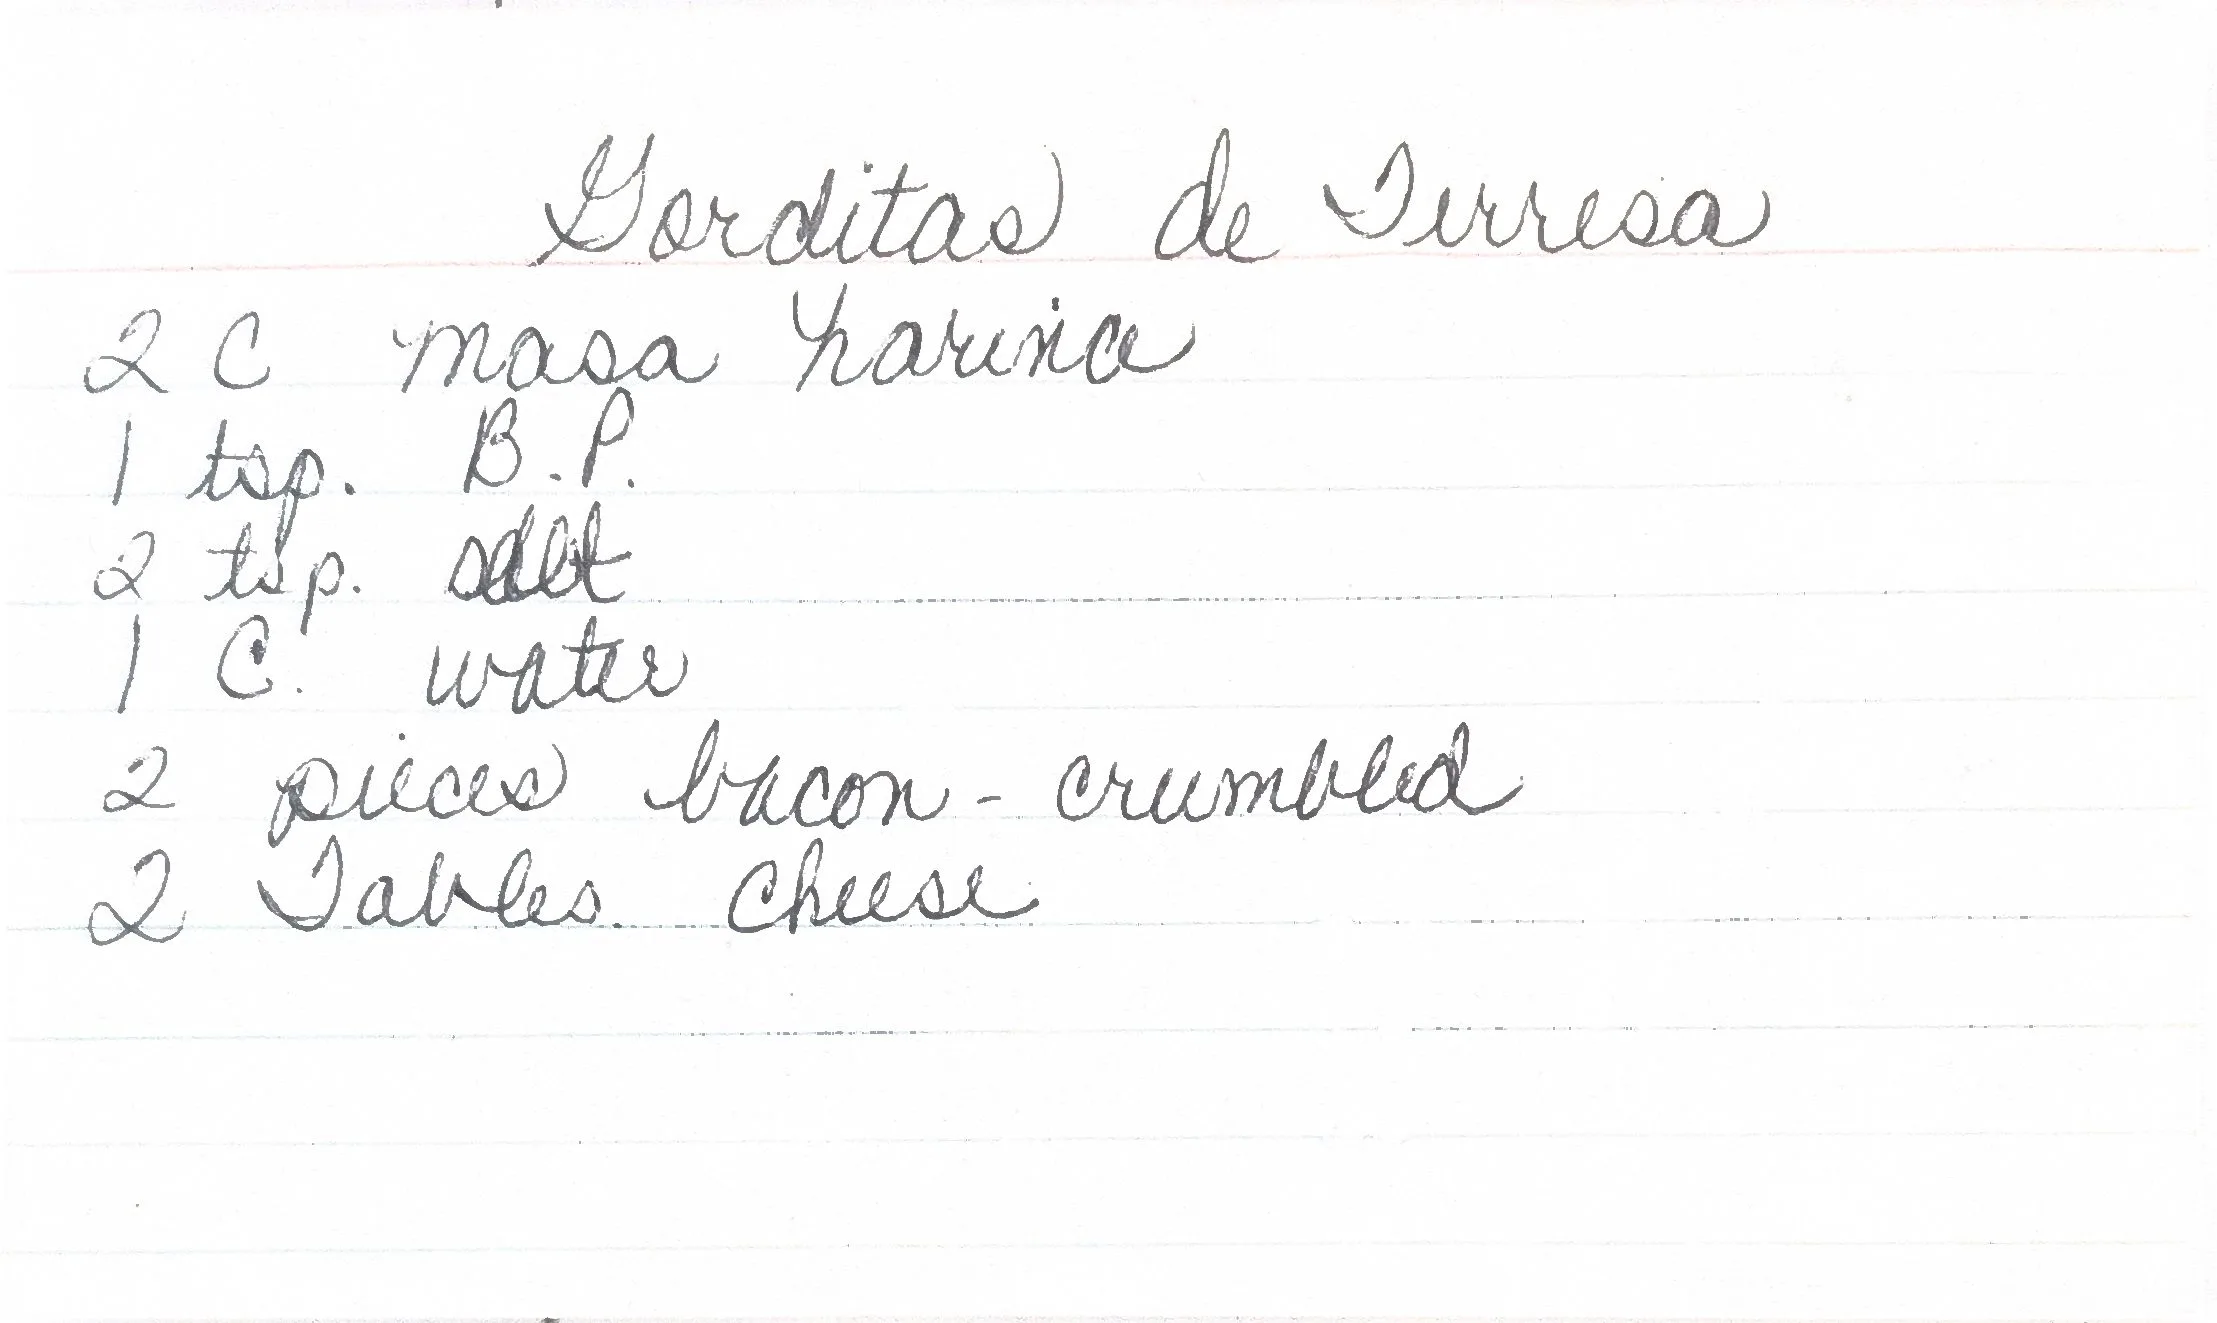 Gorditas de Terresa
2 C masa harina
1 tsp. B.P.
2 tsp. salt
1 C. water
2 pieces bacon - crumbled
2 Tables. cheese